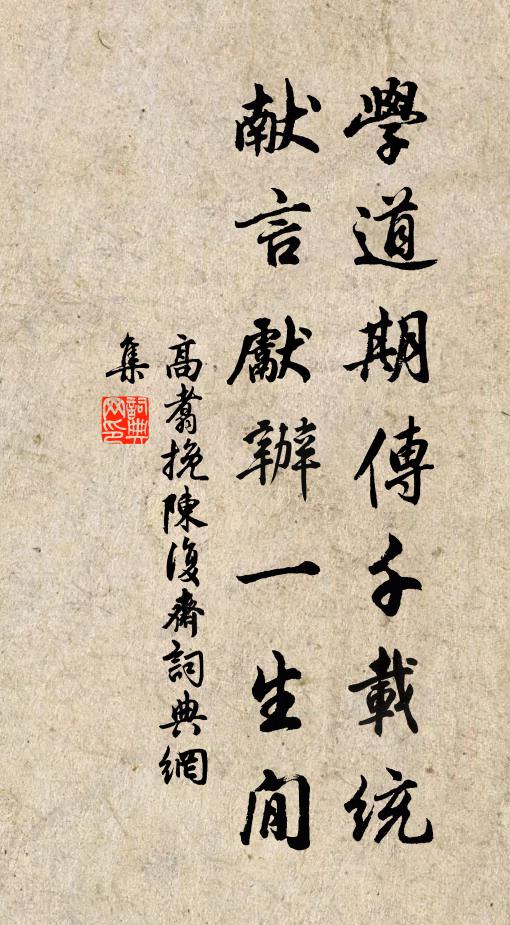 學道期傳千載統
献言獻辦一生閒
高翥挽陳復齋詞典網
集
詞典
网印